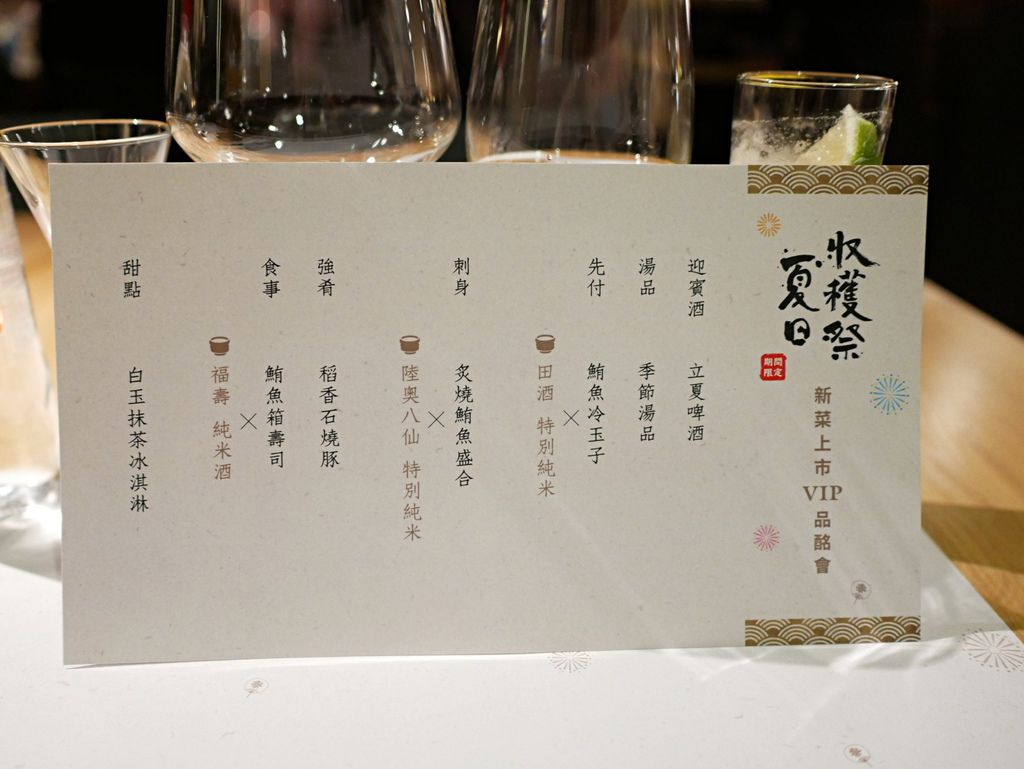 夏日
収穫祭
期間
限定
新菜上市VIP品酩會
迎賓酒 立夏啤酒
湯品 季節湯品
先付 鮪魚冷玉子
×
田酒 特別純米
刺身 炙燒鮪魚盛合
×
陸奧八仙 特別純米
強肴 稻香石燒豚
食事 鮪魚箱壽司
×
福壽 純米酒
甜點 白玉抹茶冰淇淋